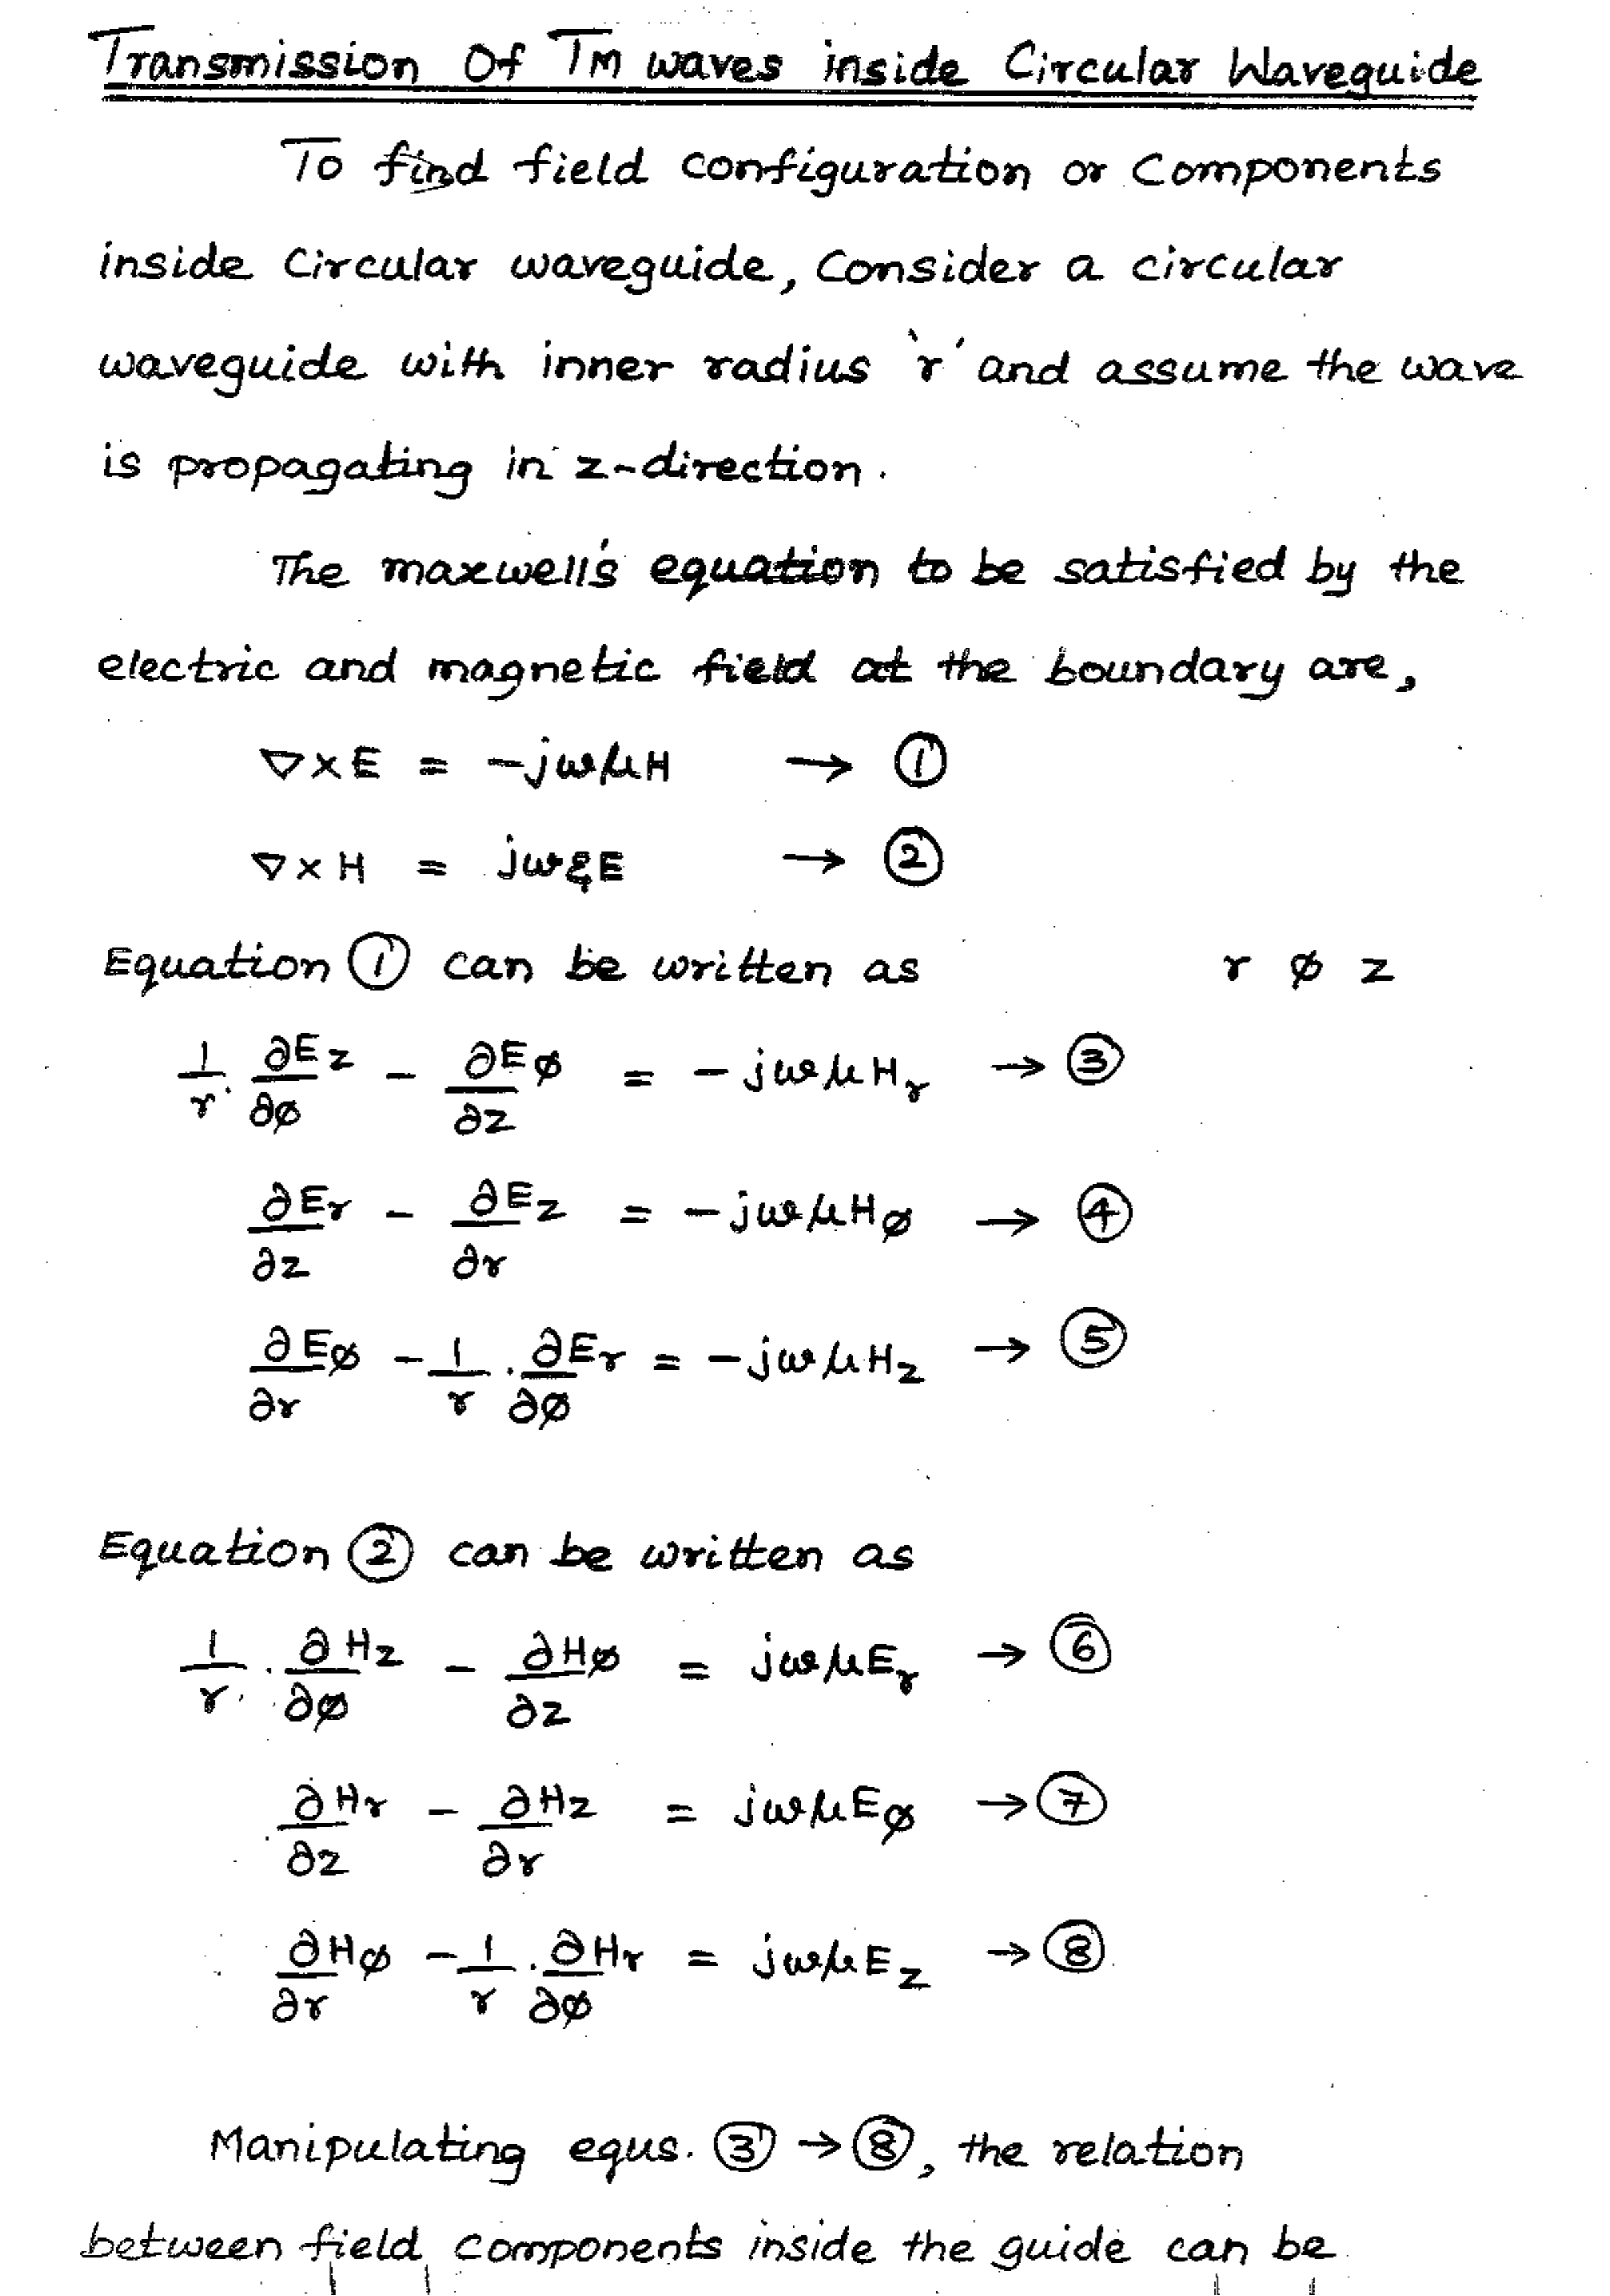 Transmission Of TM waves inside Circular Waveguide
To find field configuration or components
inside circular waveguide, Consider a circular
waveguide with inner radius 'r' and assume the wave
is propagating in z-direction.
The maxwell's equation to be satisfied by the
electric and magnetic field at the boundary are,
∇×E = -jωμH → ①
∇×H = jωεE → ②
Equation ① can be written as r ø z
1/r . ∂Ez/∂ø - ∂Eø/∂z = -jωμHr → ③
∂Er/∂z - ∂Ez/∂r = -jωμHø → ④
∂Eø/∂r - 1/r . ∂Er/∂ø = -jωμHz → ⑤
Equation ② can be written as
1/r . ∂Hz/∂ø - ∂Hø/∂z = jωμEr → ⑥
∂Hr/∂z - ∂Hz/∂r = jωμEø → ⑦
∂Hø/∂r - 1/r . ∂Hr/∂ø = jωμEz → ⑧
Manipulating equs. ③ → ⑧, the relation
between field components inside the guide can be